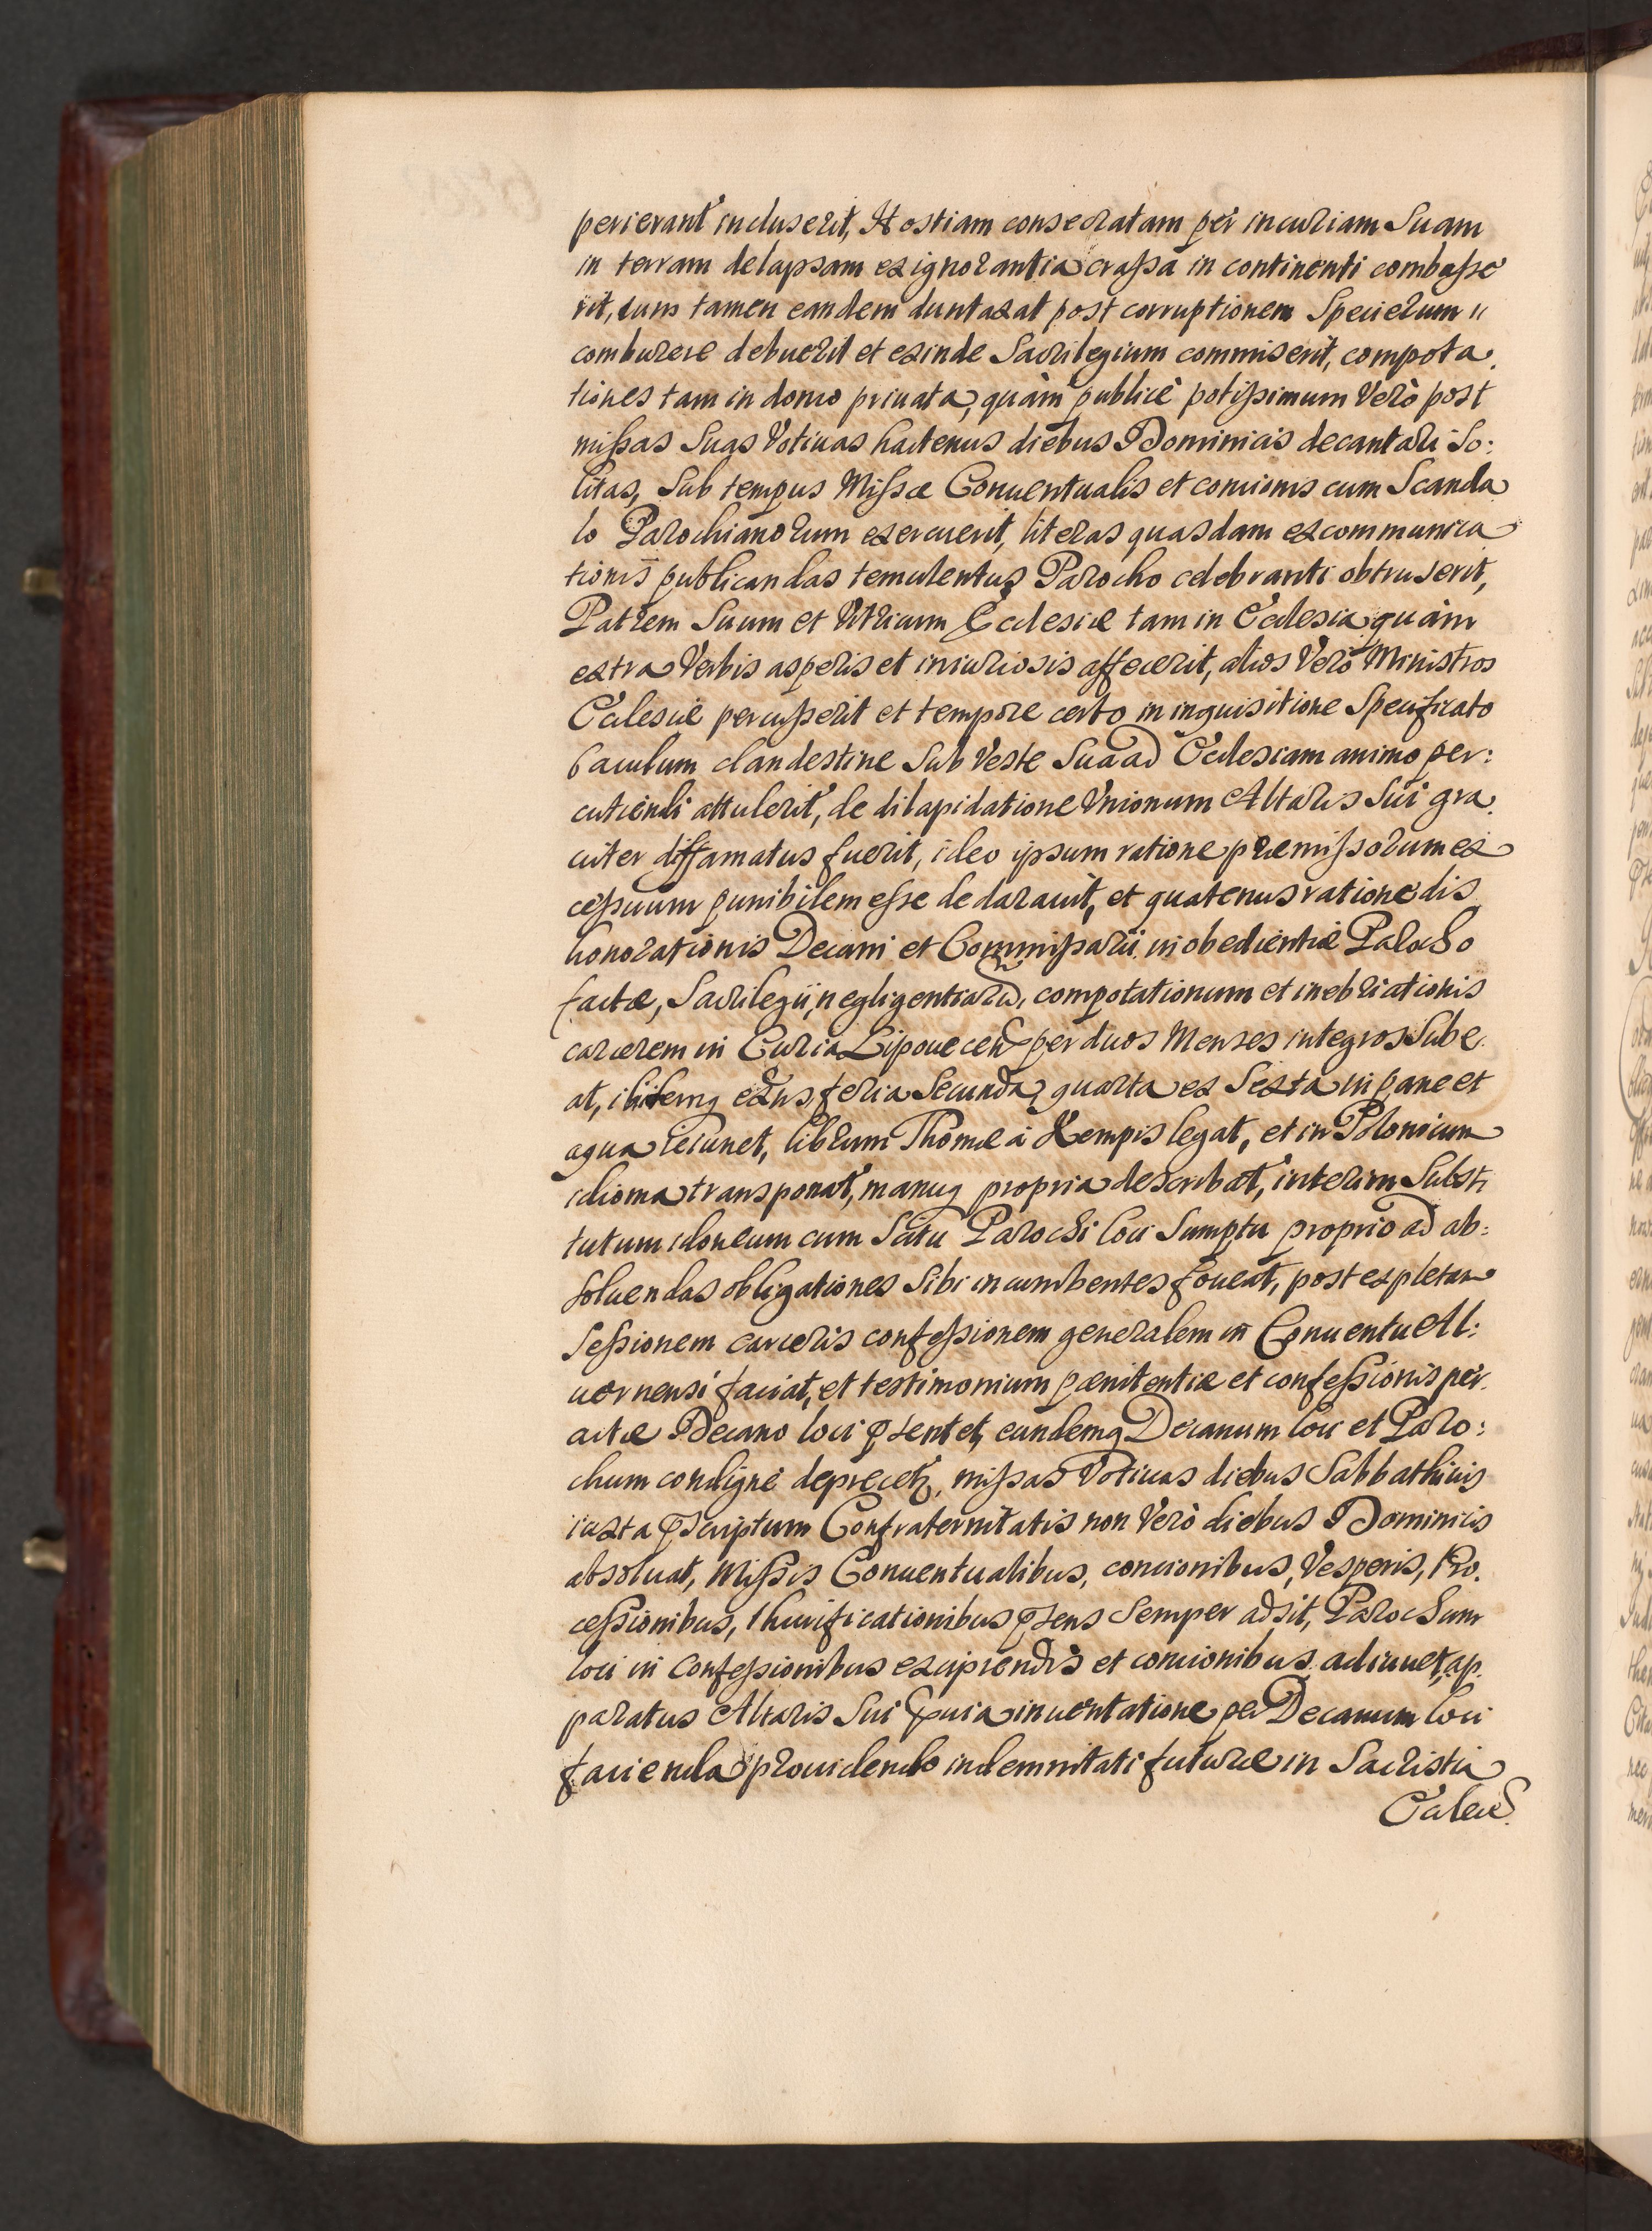 perierant incluserit, Hostiam consecratam per incuriam Suam
in terram delapsam ex ignorantia crassa in continenti combusse
rit, cum tamen eandem duntaxat post corruptionem Specierum
comburere debuerit et exinde Sacrilegium commiserit, compota
tiones tam in domo priuata, quàm publicè potissimum Verò post
missas Suas Votiuas hactenus diebus Dominicis decantari So:
litas, Sub tempus Missæ Conuentualis et concionis cum Scanda
lo Parochianorum exercuerit, literas quasdam excommunica
tionis publicandas temulentus Parocho celebranti obtruserit,
Patrem Suum et Vitricum Ecclesiæ tam in Ecclesia quàm
extra Verbis asperis et iniuriosis affecerit, alios Verò Ministros
Ecclesiæ percusserit et tempore certo in inquisitione Specificato
baculum clandestine Sub Veste Sua ad Ecclesiam animo per:
cutiendi attulerit, de dilapidatione Vnionum Altaris Sui gra
uiter diffamatus fuerit, ideo ipsum ratione præmissorum ex
cessuum punibilem esse declarauit, et quatenus ratione dis
honorationis Decani et Commissarii inobedientiæ Parocho
factæ, Sacrilegii, negligentiarũ, compotationum et inebriationis
carcerem in Curia Lipouecen per duos Menses integros Sube
at, ibidemq feria Secunda, quarta et Sexta in pane et
aqua ieiunet, librum Thomæ à Kempis legat, et in Polonicum
idioma transponat, manuq propria describat, interim Substi
tutum idoneum cum Scitu Parochi loci Sumptu proprio ad ab:
soluendas obligationes Sibi incumbentes foueat, post expletam
Sessionem carceris confessionem generalem in Conuentu Al:
uernensi faciat, et testimonium pænitentiæ et confessionis per
actæ Decano loci pñsentet, eundemq Decanum loci et Paro:
chum condignè deprecetr, missas Votiuas diebus Sabbathinis
iuxta pñscriptum Confraternitatis non Verò diebus Dominicis
absoluat, Missis Conuentualibus, concionibus, Vesperis, Pro
cessionibus, thurificationibus pñsens Semper adsit, Parochum
loci in Confessionibus excipiendis et concionibus adiuuet, ap
paratus Altaris Sui præuia inuentatione per Decanum loci
facienda prouidendo indemnitati futuræ in Sacristia
Ecclesiæ